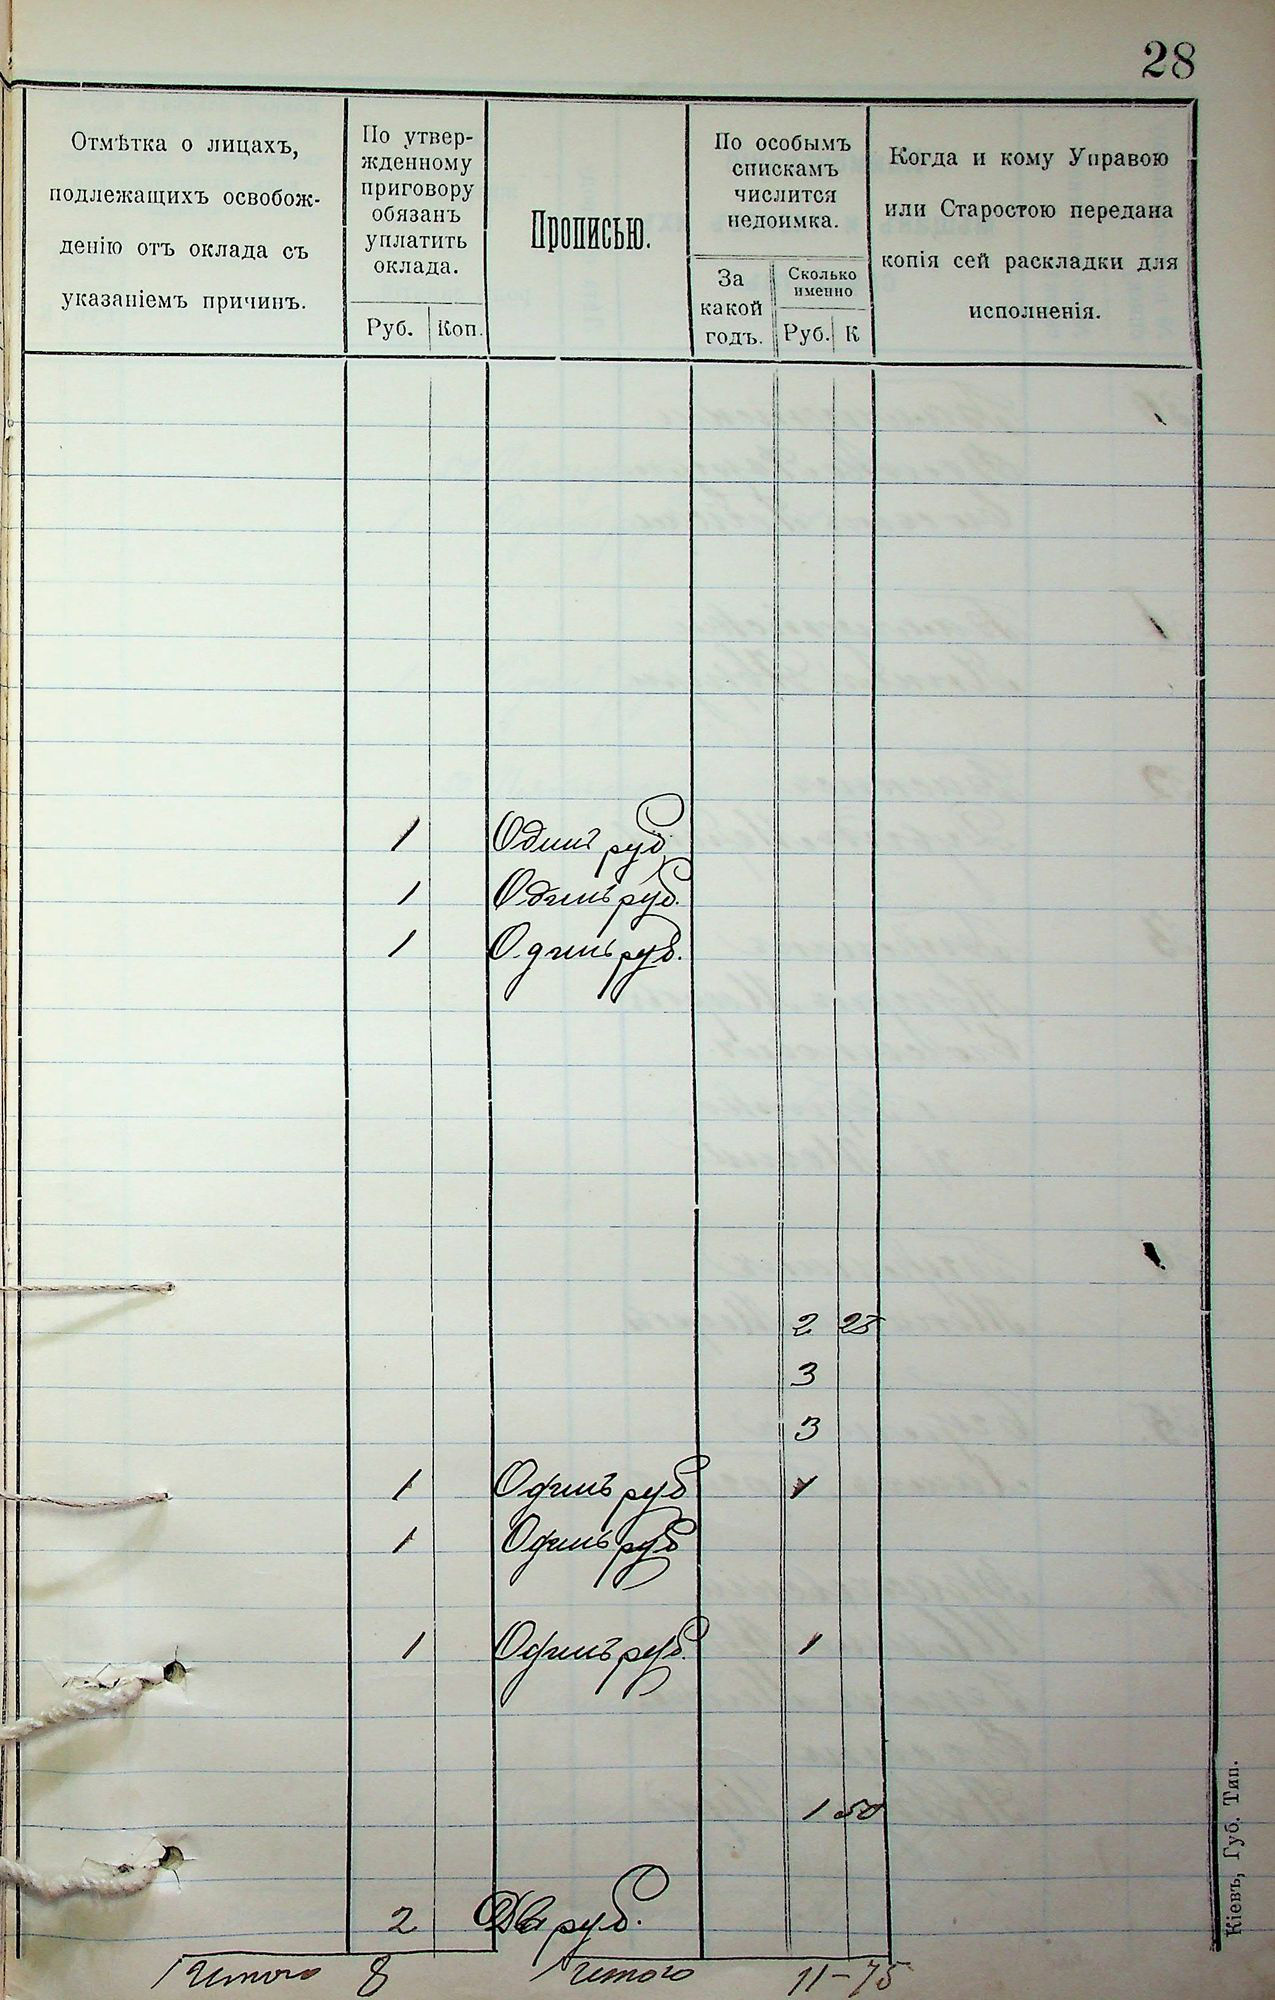 28
Отмѣтка о лицахъ,
подлежащихъ освобож-
денію отъ оклада съ
указаніемъ причинъ.
По утвер-
жденному
приговору
обязанъ
уплатить
оклада.
Руб. Коп.
Прописью.
По особымъ
спискамъ
числится
недоимка.
За
какой
годъ.
Сколько
именно
Руб. К
Когда и кому Управою
или Старостою передана
копія сей раскладки для
исполненія.
1 Одинъ руб
1 Одинъ руб.
1 Одинъ руб.
2 25
3
3
1 Одинъ руб 1
1 Одинъ руб
1 Одинъ руб. 1
1 50
2 Два руб.
Итого 8 Итого 11-75
Кіевъ, Губ. Тип.